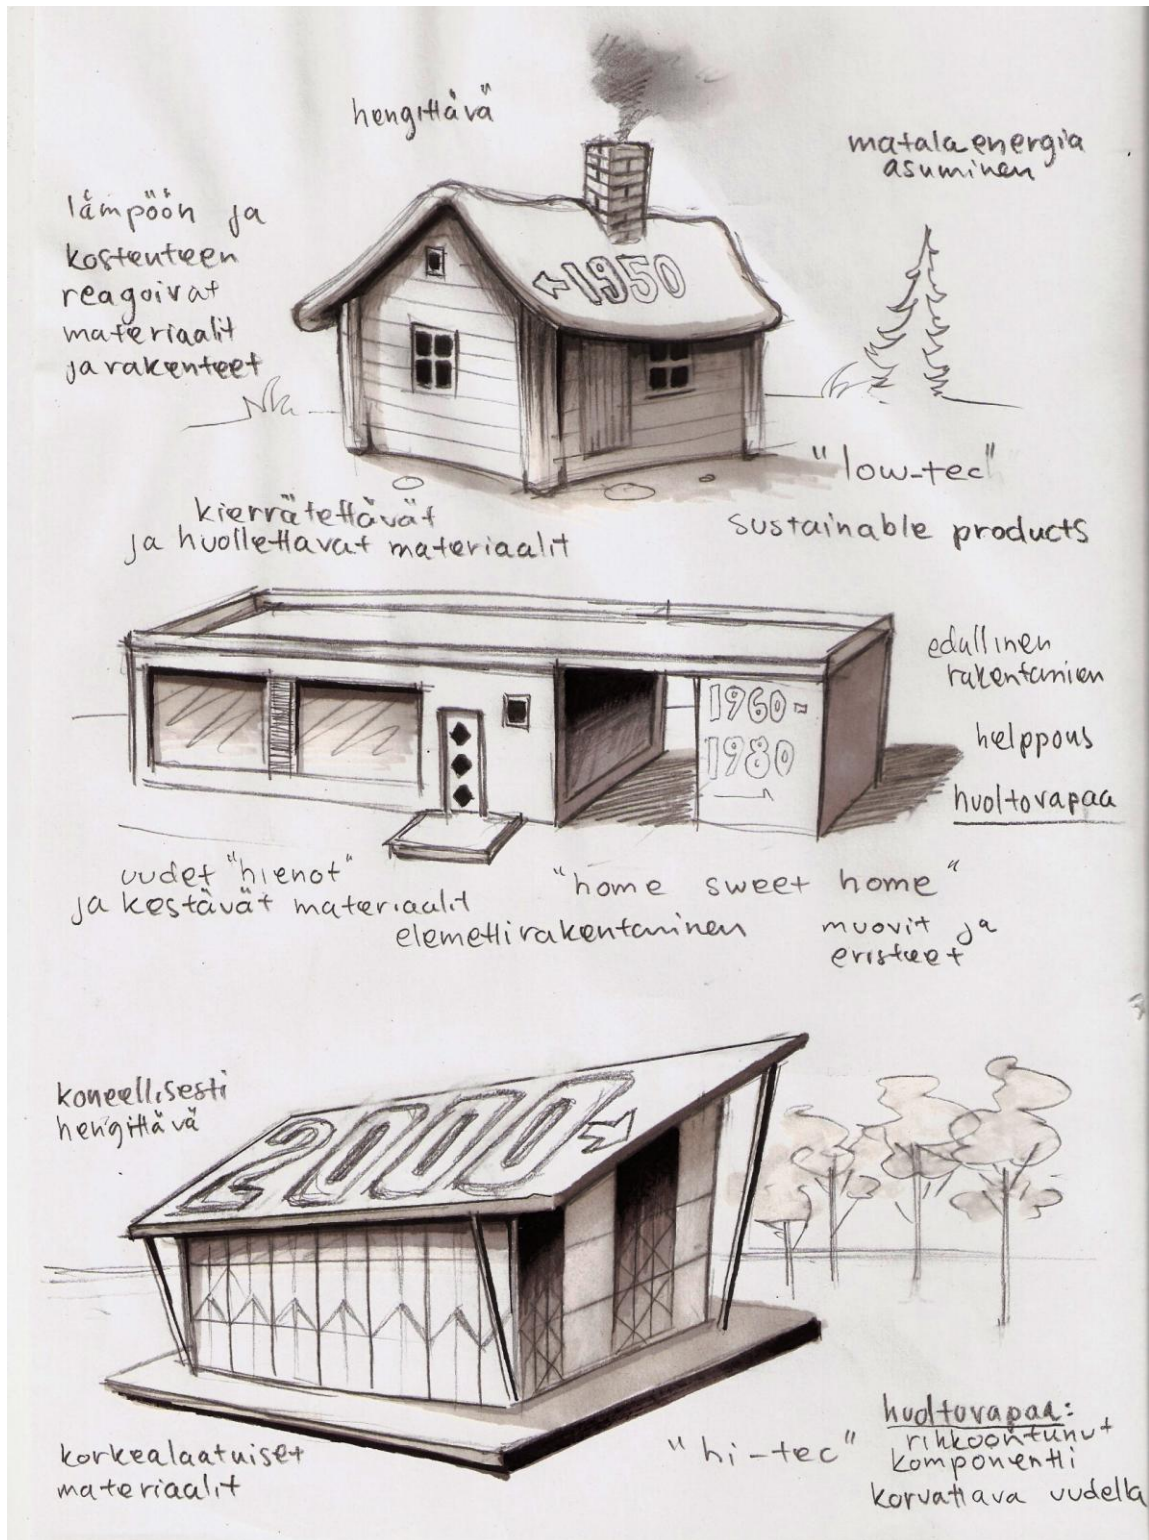 hengittävä
matalaenergia
asuminen
lämpöön ja
kosteuteen
reagoivat
materiaalit
ja rakenteet
←1950
"low-tec"
kierrätettävät
ja huollettavat materiaalit
sustainable products
edullinen
rakentamien
1960-
1980
helppous
huoltovapaa
uudet "hienot"
ja kestävät materiaalit
"home sweet home"
elemettirakentaminen
muovit ja
eristeet
koneellisesti
hengittävä
2000→
korkealaatuiset
materiaalit
"hi-tec"
huoltovapaa:
rikkoontunut
komponentti
korvattava uudella